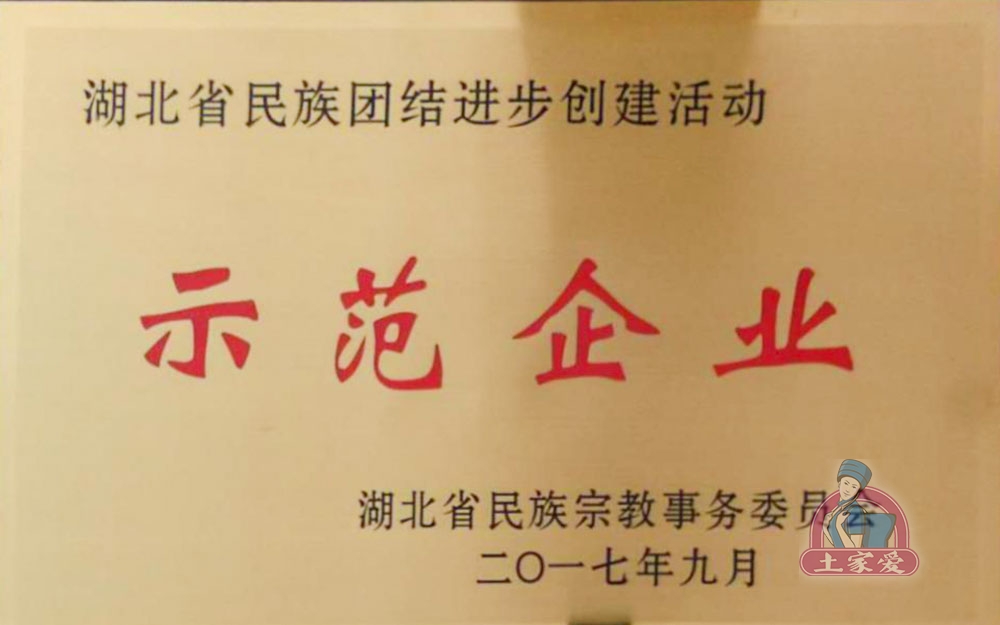 湖北省民族团结进步创建活动
示范企业
湖北省民族宗教事务委员会
二〇一七年九月
土家爱